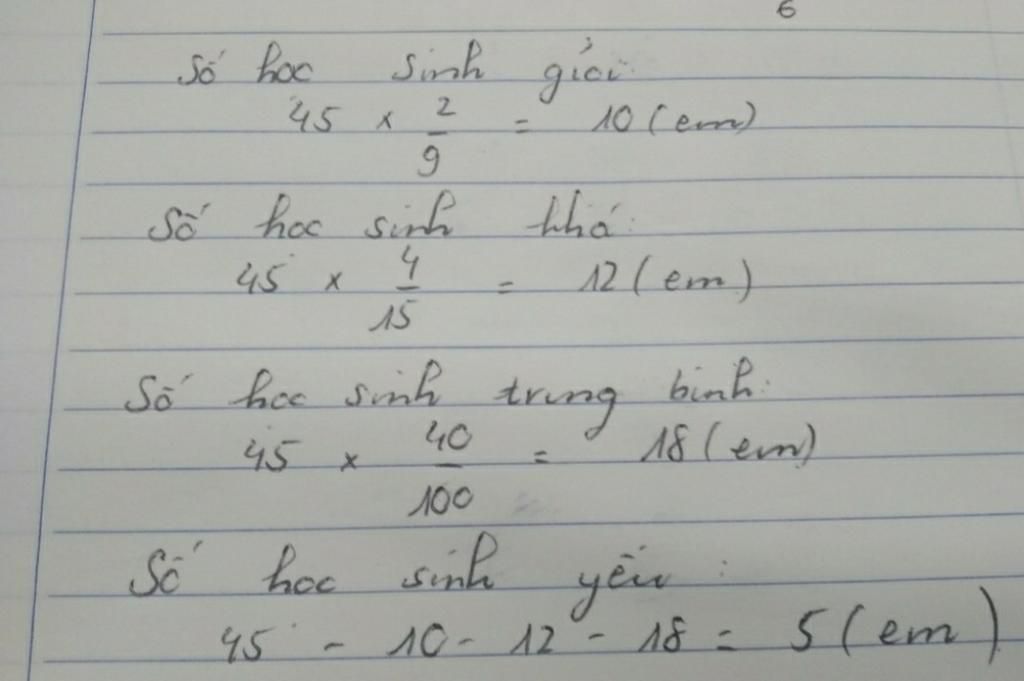 6
Số học sinh giỏi:
45 × 2/9 = 10 (em)
Số học sinh khá:
45 × 4/15 = 12 (em)
Số học sinh trung bình:
45 × 40/100 = 18 (em)
Số học sinh yếu:
45 - 10 - 12 - 18 = 5 (em)